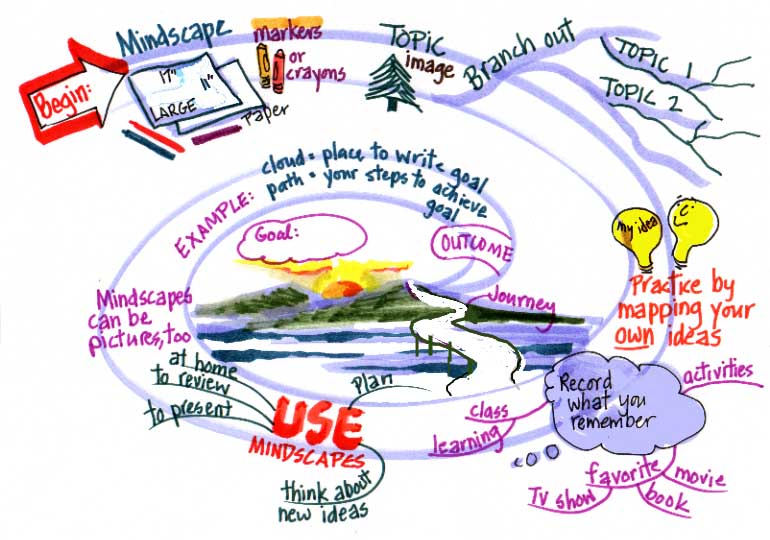 Begin:
Mindscape
17"
11"
LARGE
Paper
markers
or
crayons
TOPIC
image
Branch out
TOPIC 1
TOPIC 2
cloud = place to write goal
path = your steps to achieve
goal
EXAMPLE:
Goal:
OUTCOME
Journey
my idea
Practice by
mapping your
own ideas
Mindscapes
can be
pictures, too
at home
to review
to present
Plan
USE
MINDSCAPES
think about
new ideas
class
learning
Record
what you
remember
activities
favorite
movie
book
TV show